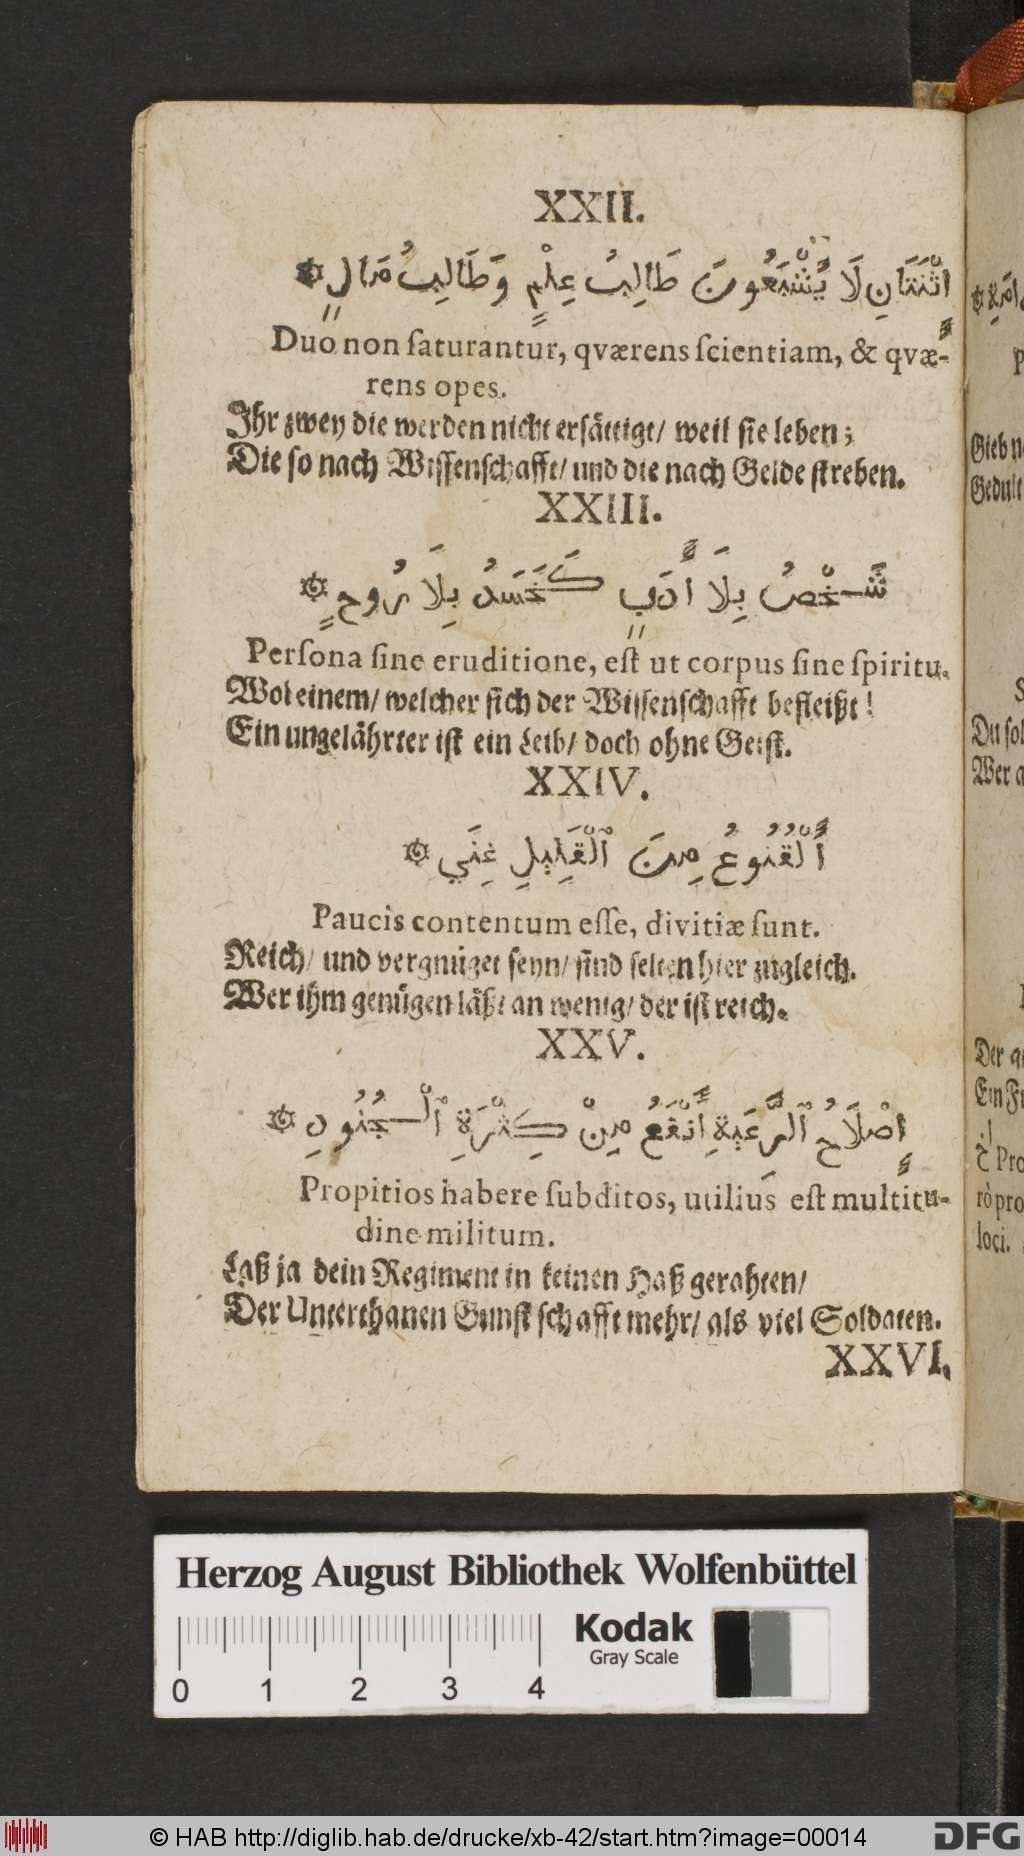 XXII.
اِثْنَتَانِ لَا يَشْبَعُونَ طَالِبُ عِلْمٍ وَطَالِبُ مَالٍ ۞
Duo non ſaturantur, qværens ſcientiam, & qvæ-
rens opes.
Ihr zwey die werden nicht erſättigt/ weil ſie leben;
Die ſo nach Wiſſenſchafft/ und die nach Gelde ſtreben.
XXIII.
شَخْصُ بِلَا أَدَبٍ كَجَسَدُ بِلَا رُوحٍ ۞
Perſona ſine eruditione, eſt ut corpus ſine ſpiritu.
Wol einem/ welcher ſich der Wiſſenſchafft befleißt!
Ein ungelährter iſt ein Leib/ doch ohne Geiſt.
XXIV.
أَلْقُنُوعُ مِنَ ٱلْقَلِيلِ غِنَي ۞
Paucis contentum eſſe, divitiæ ſunt.
Reich/ und vergnüget ſeyn/ ſind ſelten hier zugleich.
Wer ihm genügen läßt an wenig/ der iſt reich.
XXV.
إِصْلَاحُ ٱلرَّعَيةِ أَنْفَعُ مِنْ كِثْرَةِ ٱلْجُنُودِ ۞
Propitios habere ſubditos, utilius eſt multitu-
dine militum.
Laß ja dein Regiment in keinen Haß gerahten/
Der Unterthanen Gunſt ſchafft mehr/ als viel Soldaten.
XXVI.
Gieb
Gedult
Du ſol
Wer
Der
Ein
Pro
rò pro
loci.
Herzog August Bibliothek Wolfenbüttel
Kodak
Gray Scale
0 1 2 3 4
© HAB http://diglib.hab.de/drucke/xb-42/start.htm?image=00014
DFG